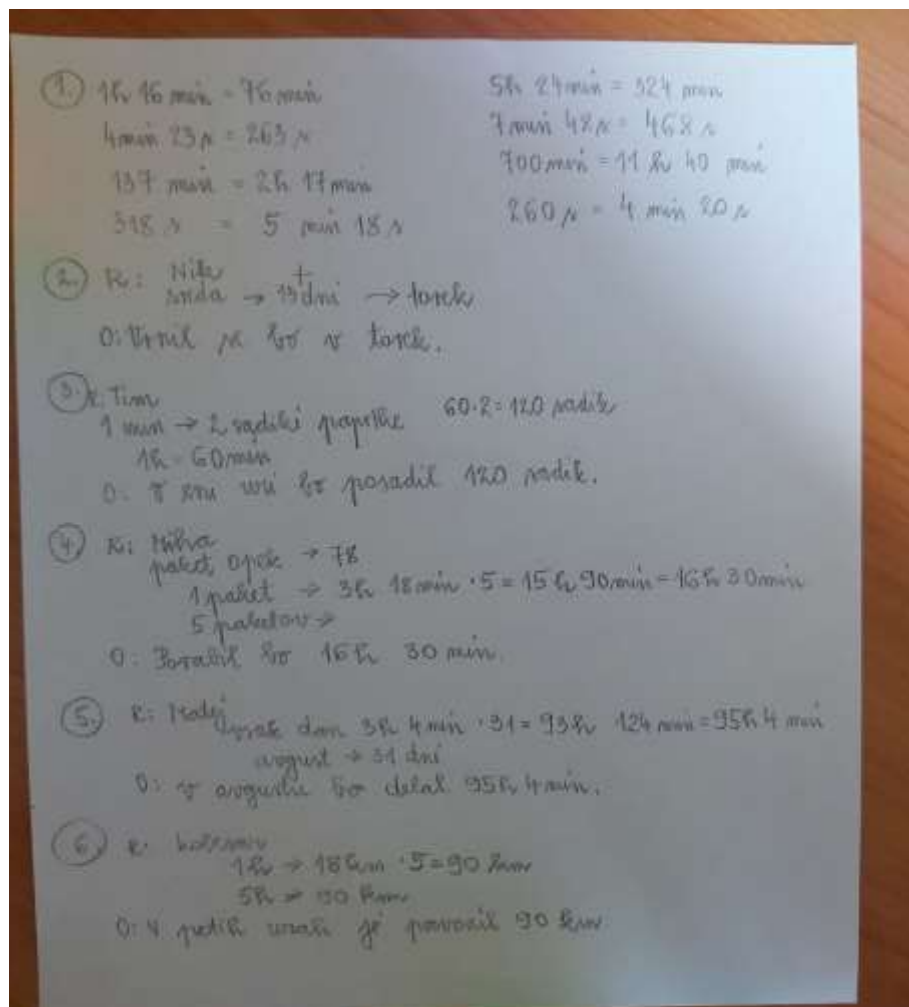 1. 1h 16 min = 76 min
4min 23 s = 263 s
137 min = 2h 17 min
318 s = 5 min 18 s
5h 24min = 324 min
7 min 48 s = 468 s
700 min = 11 h 40 min
260 s = 4 min 20 s
2. R:
sreda → 13 dni → torek
+
O: Vrnil se bo v torek.
3. R: Tim
1 min → 2 sadiki paprike 60·2=120 sadik
1h = 60min
O: V eni uri bo posadil 120 sadik.
4. R: Miha
paket opek → 78
1 paket → 3h 18min · 5 = 15 h 90min = 16h 30min
5 paketov →
O: Porabil bo 16 h 30 min.
5. R: Matej
vsak dan 3h 4 min · 31 = 93h 124 min = 95h 4 min
avgust → 31 dni
O: v avgustu bo delal 95h 4min.
6. R:
1h → 18 km · 5 = 90 km
5h → 90 km
O: V petih urah je prevozil 90 km